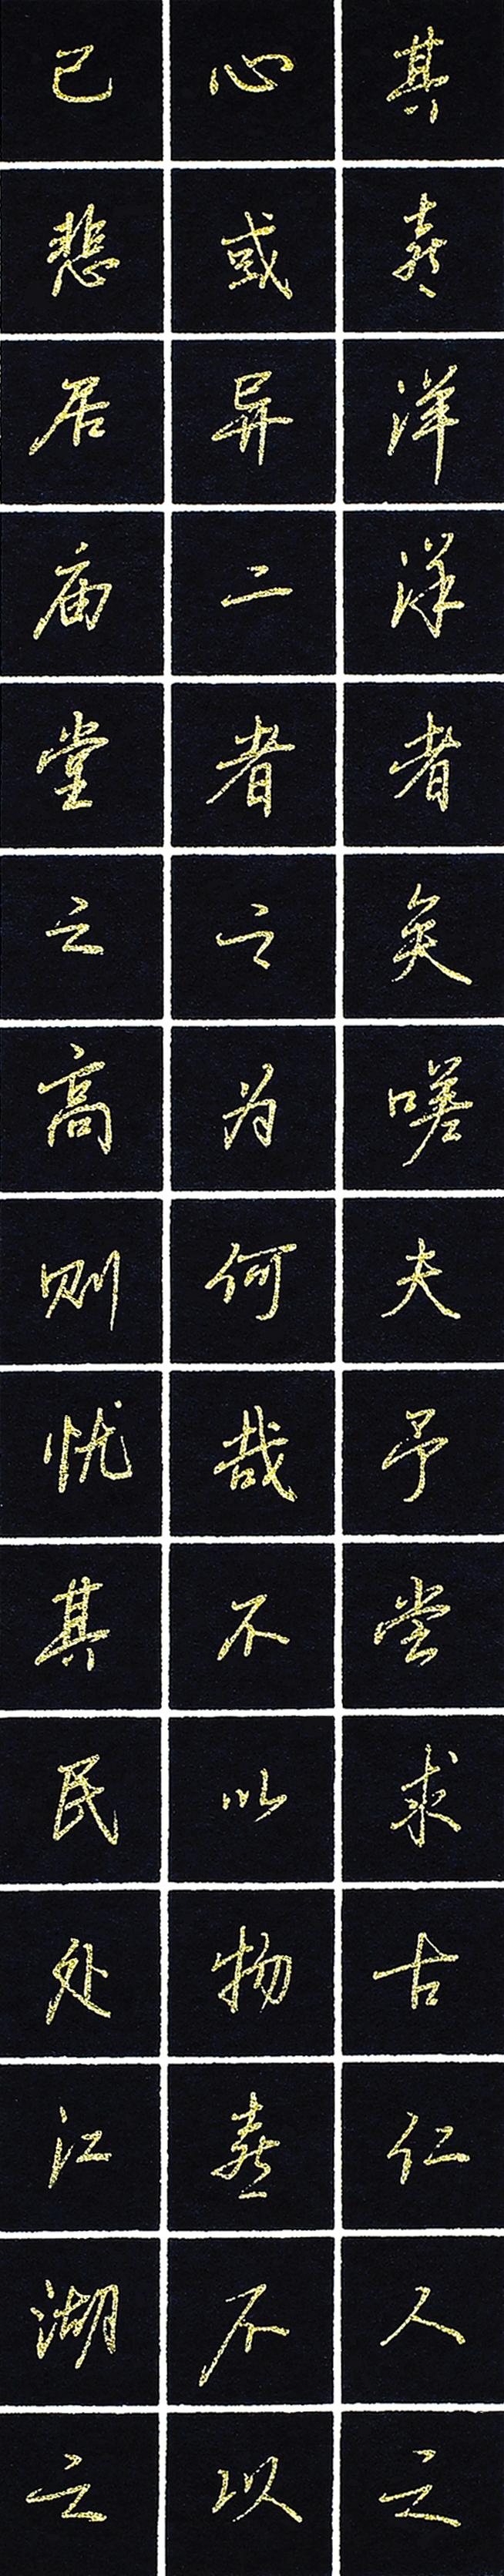 其喜洋洋者矣嗟夫予尝求古仁人之
心或异二者之为何哉不以物喜不以
己悲居庙堂之高则忧其民处江湖之